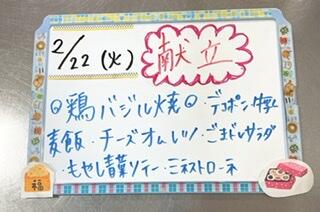 2/22(火) 献立
◎鶏バジル焼◎・デコポン・牛乳
麦飯・チーズオムレツ・ごまドレサラダ
・もやし青菜ソテー・ミネストローネ
福